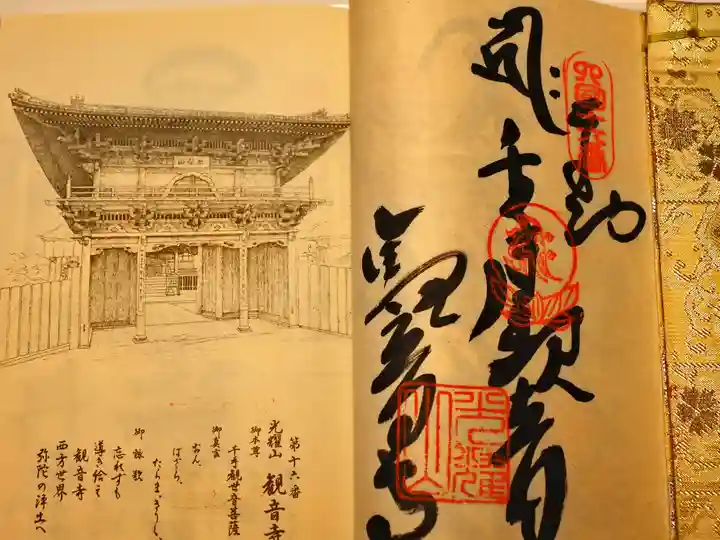 奉
千手観音
観音寺
四国十六番
光耀山
第十六番
光耀山 観音寺
御本尊
千手観世音菩薩
御真言
おん、
ばざら、
たらま、きりく、
御詠歌
忘れずも
導き給え
観音寺
西方世界
弥陀の浄土へ